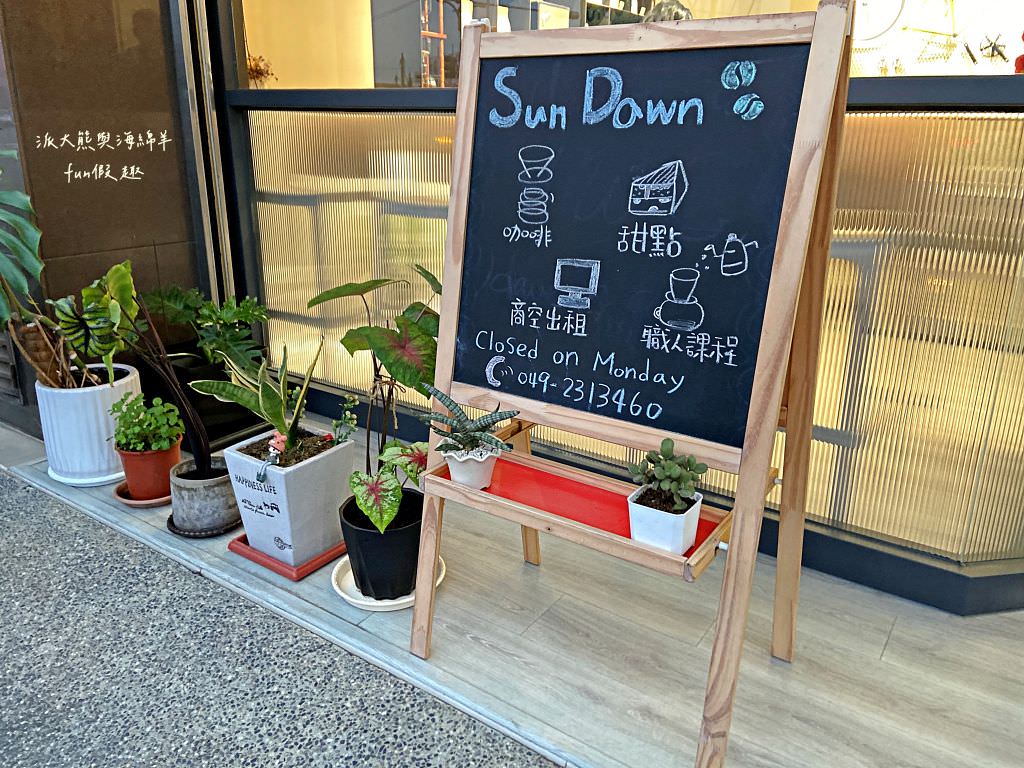 派大熊與海綿羊
fun假趣
Sun Dawn
咖啡
甜點
商空出租
職人課程
Closed on Monday
049-2313460
HAPPINESS LIFE